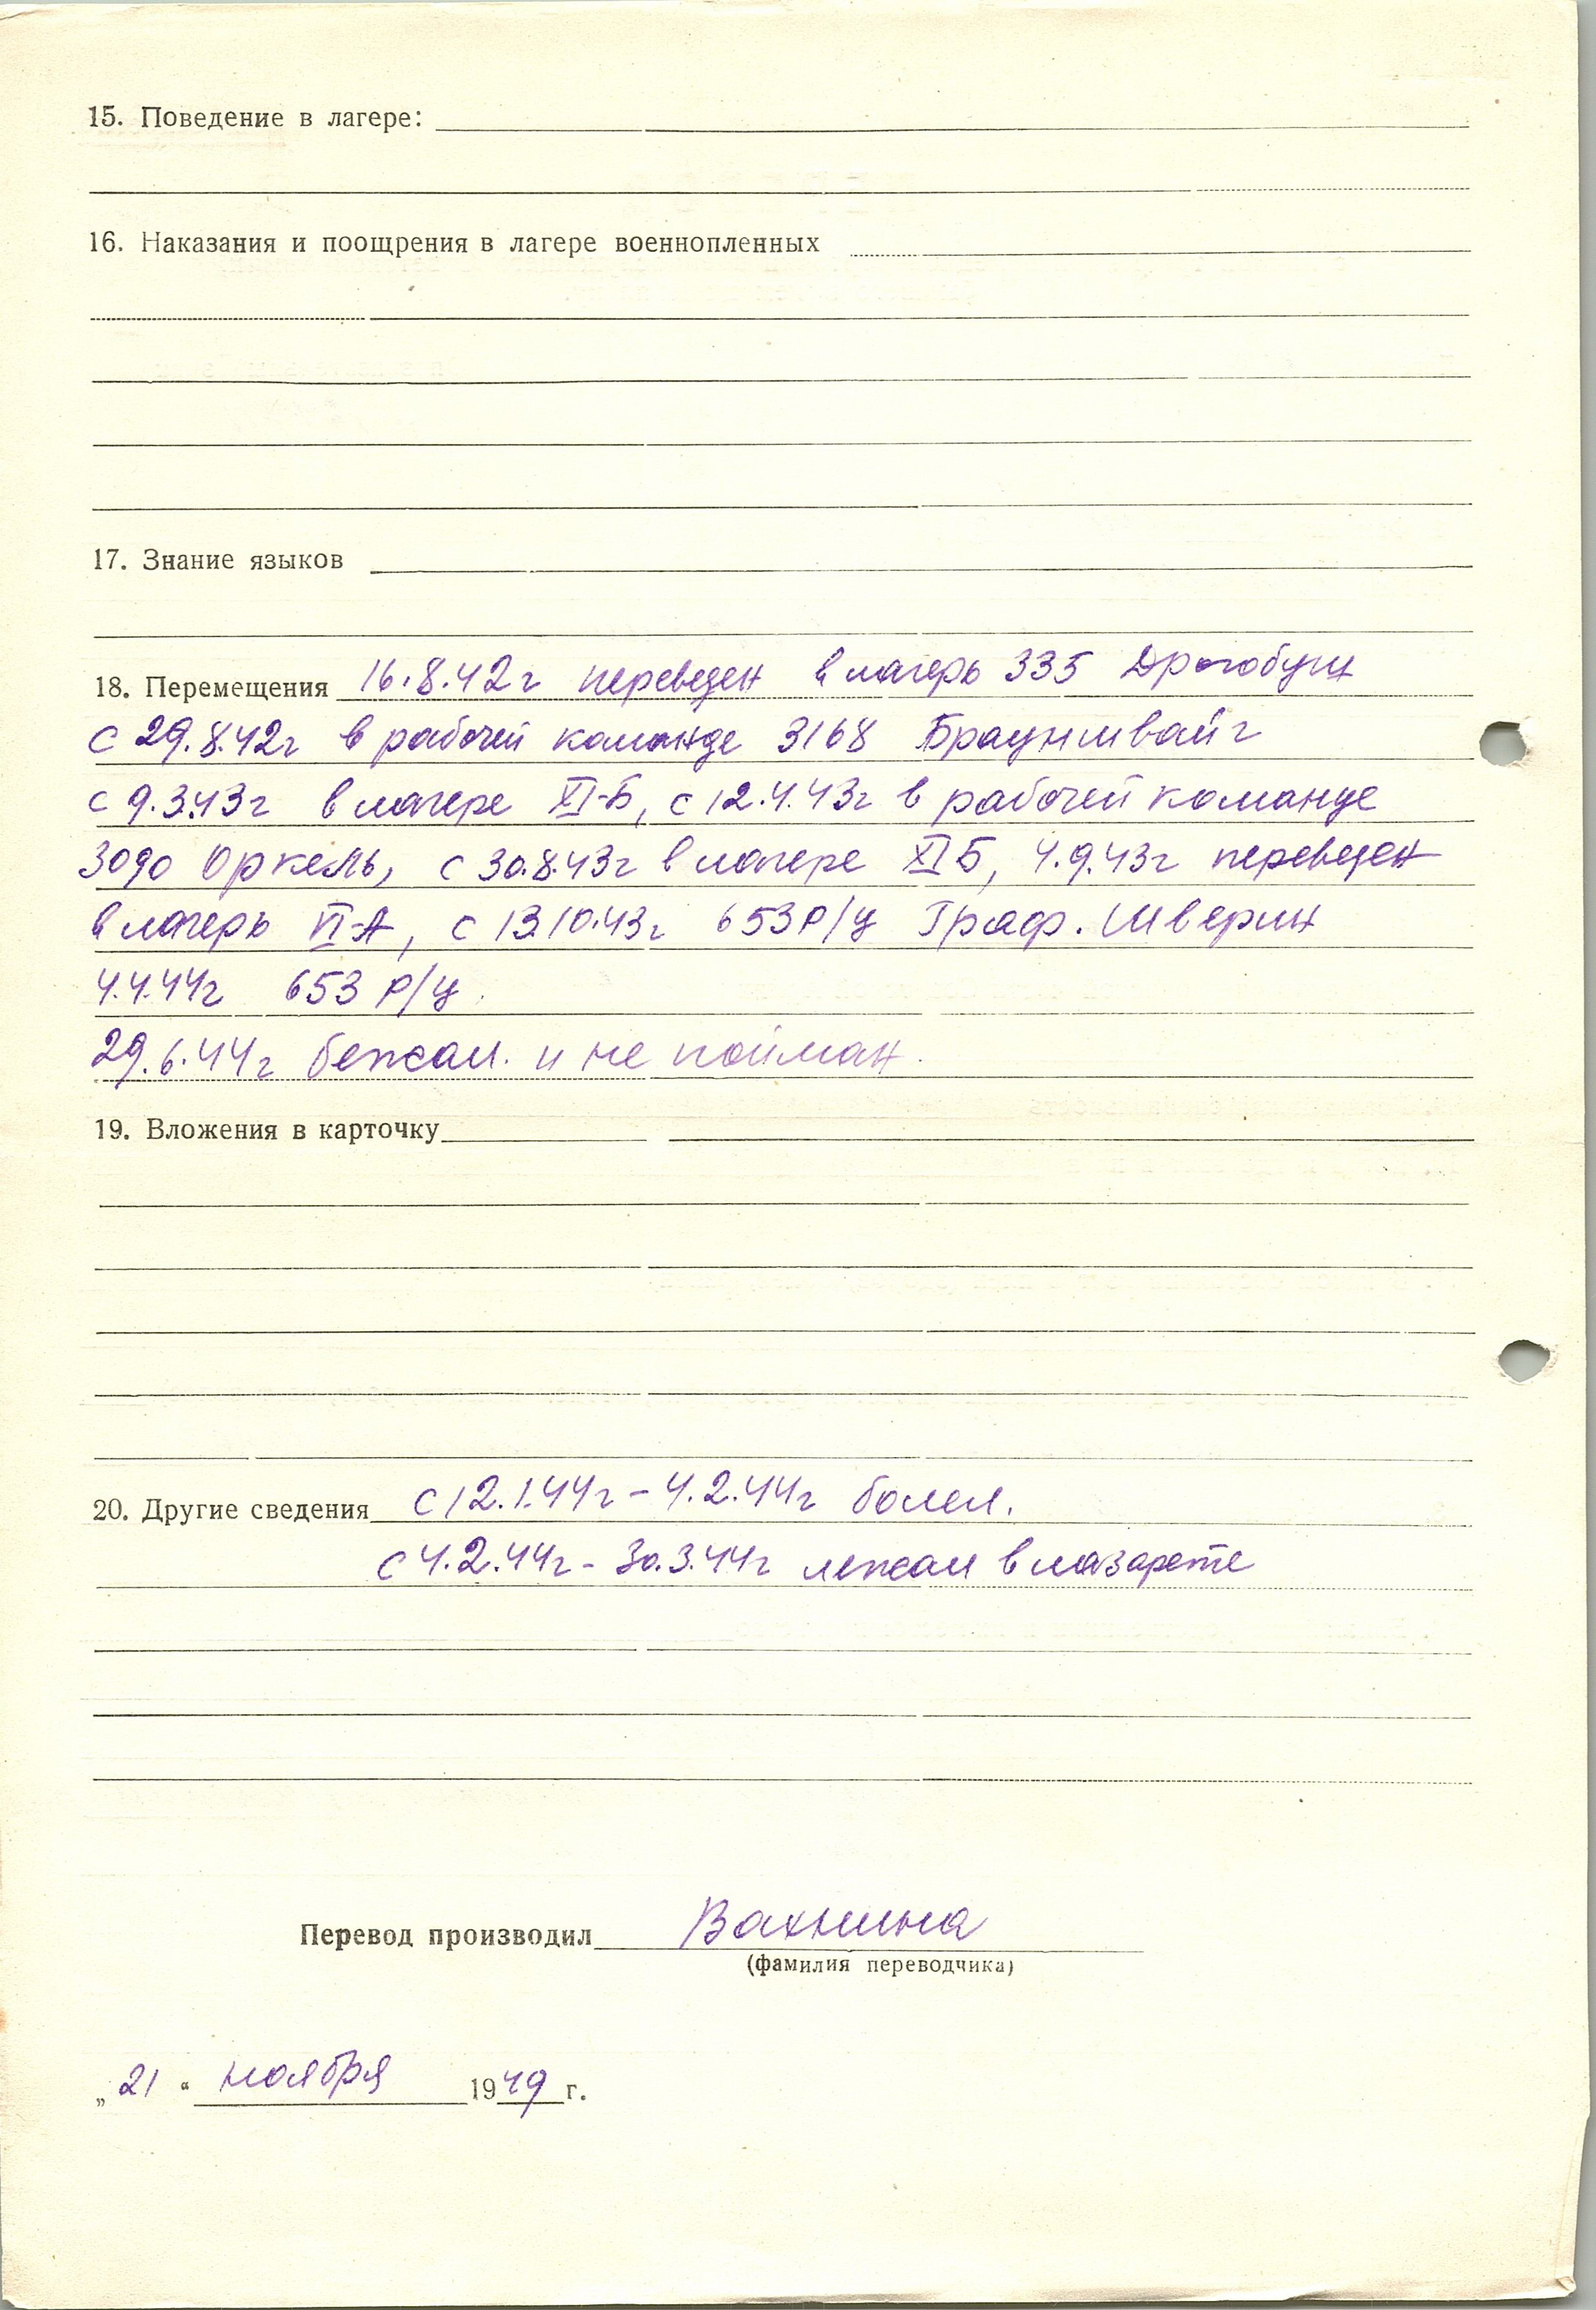 15. Поведение в лагере:
16. Наказания и поощрения в лагере военнопленных
17. Знание языков
18. Перемещения 16.8.42г переведен в лагерь 335 Дрогобуч
с 29.8.42г в рабочей команде 3168 Брауншвайг
с 9.3.43г в лагере XI-Б, с 12.4.43г в рабочей команде
3090 Оркель, с 30.8.43г в лагере XI Б, 4.9.43г переведен
в лагерь VI-А, с 13.10.43г 653 Р/У Граф. Шверин
4.4.44г 653 Р/У.
29.6.44г бежал. и не пойман.
19. Вложения в карточку
20. Другие сведения с 12.1.44г - 4.2.44г болел.
с 4.2.44г - 30.3.44г лежал в лазарете
Перевод производил Вахнина
(фамилия переводчика)
„21“ ноября 1949 г.